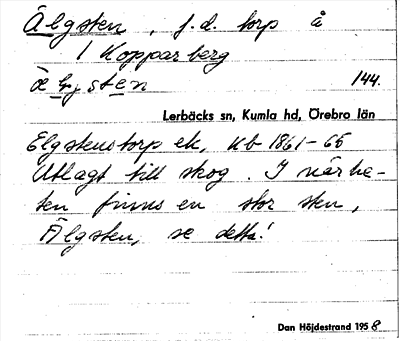 Älgsten, f.d. torp å
1 Kopparberg
æl̹jsten 144.
Lerbäcks sn, Kumla hd, Örebro län
Elgstenstorp ek, Kb 1861-65
Utlagt till skog. I närhe-
ten finns en stor sten,
Älgsten, se detta!
Dan Höjdestrand 1958